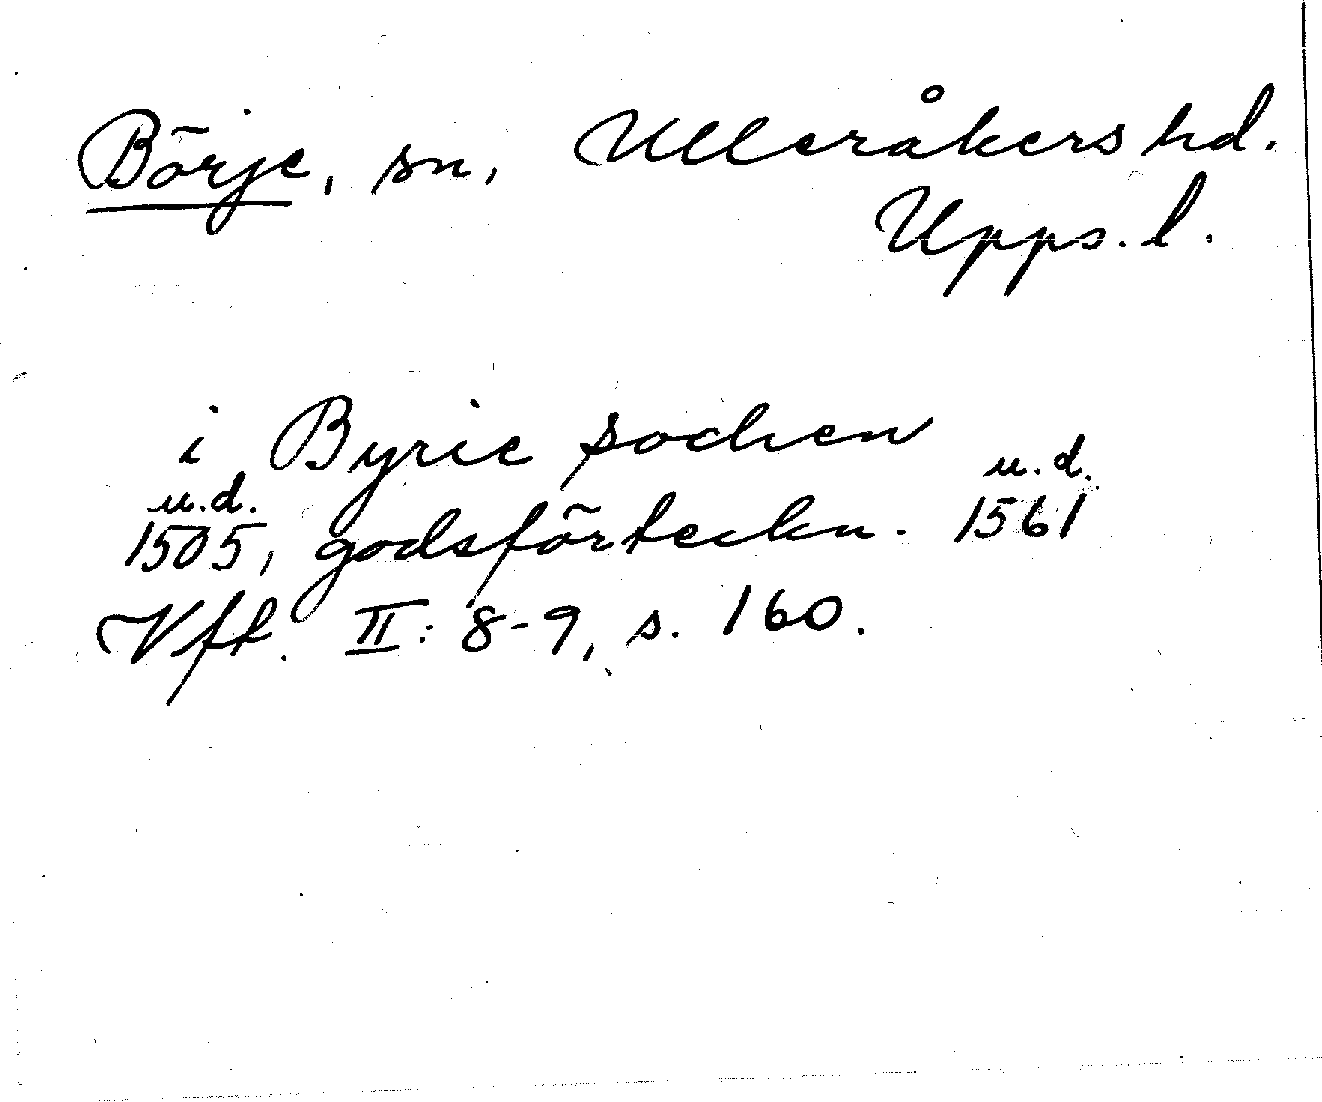 Börje, sn, Ulleråkers hd.
Upps. l.
i Byrie sochen
u.d. u.d.
1505, godsförteckn. 1561
Vfl. II: 8-9, s. 160.